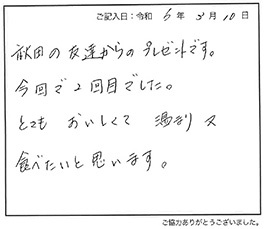 ご記入日：令和 5年 3月 10日
秋田の友達からのプレゼントです。
今回で2回目でした。
とても おいしくて 又
食べたいと思います。
ご協力ありがとうございました。